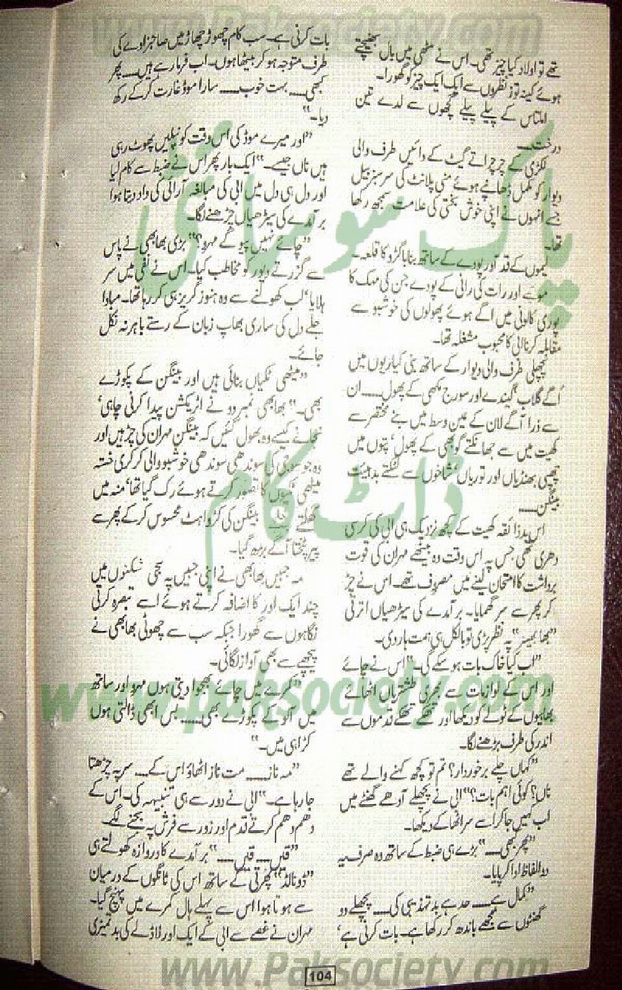 www.Paksociety.com
تھے تو اولاد کیا چیز تھی۔ اس نے مٹھی میں بال بھینچتے
ہوئے کینہ توز نظروں سے ایک ایک چیز کو گھورا۔
املتاس کے پیلے پیلے گچھوں سے لدے تین
درخت.....
لکڑی کے چرچراتے گیٹ کے دائیں طرف والی
دیوار کو مکمل ڈھانپے ہوئے منی پلانٹ کی سرسبز بیل
جسے انہوں نے اپنی خوش بختی کی علامت سمجھ رکھا
تھا۔
لیموں کے قد آور پودے کے ساتھ بنایا گڈو کا قلعہ۔
موتیے اور رات کی رانی کے پودے جن کی مہک کا
پوری کالونی میں اگے ہوئے پھولوں کی خوشبو سے
مقابلہ کرنا ابی کا محبوب مشغلہ تھا۔
پچھلی طرف والی دیوار کے ساتھ بنی کیاریوں میں
اُگے گلاب، گیندے اور سورج مکھی کے پھول..... ان
سے ذرا آگے لان کے عین وسط میں بنے مختصر سے
کھیت میں سے جھانکتے گوبھی کے پھول، پتوں میں
چھپی بھنڈیاں اور توریاں، شاخوں سے لٹکتے بدہیئت
بینگن.....
اس بدذائقہ کھیت کے کچھ نزدیک ہی ابی کی کرسی
دھری تھی جس پہ اس وقت وہ بیٹھے مہران کی قوت
برداشت کا امتحان لینے میں مصروف تھے۔ اس نے چڑ
کر پھر سے سر گھمایا۔ برآمدے کی سیڑھیاں اترتی
"بھابھیز" پہ نظر پڑی تو بالکل ہی ہمت ہار دی۔
"اب کیا خاک بات ہو سکے گی۔" اس نے چائے
اور اس کے لوازمات سے بھری طشتریاں اٹھائے
بھابیوں کے ٹولے کو دیکھا اور تھکے تھکے قدموں سے
اندر کی طرف بڑھنے لگا۔
"کہاں چلے برخوردار؟ تم تو کچھ کہنے والے تھے
ناں؟ کوئی اہم بات؟" ابی نے پچھلے آدھے گھنٹے میں
اب کہیں جا کر اسے سر اٹھا کے دیکھا۔
"پھر کبھی....." بڑے ہی ضبط کے ساتھ وہ صرف یہ
دو الفاظ ادا کر پایا۔
"کمال ہے..... حد ہے بدتہذیبی کی..... پچھلے دو
گھنٹوں سے مجھے باندھ کر رکھا ہے۔ بات کرنی ہے،
بات کرنی ہے۔ سب کام چھوڑ چھاڑ میں صاحبزادے کی
طرف متوجہ ہو کر بیٹھا ہوں۔ اب فرما رہے ہیں..... پھر
کبھی..... بہت خوب..... سارا موڈ غارت کر کے رکھ
دیا۔"
"اور میرے موڈ کی اس وقت کونپلیں پھوٹ رہی
ہیں ناں جیسے۔" ایک بار پھر اس نے ضبط سے کام لیا
اور دل ہی دل میں ابی کی مبالغہ آرائی کی داد دیتا ہوا
برآمدے کی سیڑھیاں چڑھنے لگا۔
"چائے نہیں پیو گے مہرو؟" بڑی بھابھی نے پاس
سے گزرتے دیور کو مخاطب کیا۔ اس نے نفی میں سر
ہلایا، لب کھولنے سے وہ ہنوز گریز ہی کر رہا تھا۔ مبادا
جلے دل کی ساری بھاپ زبان کے رستے باہر نہ نکل
جائے۔
"میٹھی ٹکیاں بنائی ہیں اور بینگن کے پکوڑے
بھی۔" بھابھی نمبر دو نے اٹریکشن پیدا کرنی چاہی،
نجانے کیسے وہ بھول گئیں کہ بینگن مہران کی چڑ ہیں اور
وہ جو سوجی کی سوندھی سوندھی خوشبو والی کرکری خستہ
میٹھی ٹکیوں کا تصور کرتے ہوئے رک گیا تھا، منہ میں
گھلتے بینگن کی کڑواہٹ محسوس کر کے پھر سے
پیر پٹختا آگے بڑھ گیا۔
مہ جبیں بھابھی نے اپنی جبیں پہ سجی شکنوں میں
چند ایک اور کا اضافہ کرتے ہوئے اسے تبصرہ کرتی
نگاہوں سے گھورا جبکہ سب سے چھوٹی بھابھی نے
پیچھے سے بھی آواز لگائی۔
"کمرے میں چائے بھجوا دیتی ہوں مہرو اور ساتھ
میں آلو کے پکوڑے بھی..... بس ابھی ڈالتی ہوں
کڑاہی میں۔"
"مہ ناز..... مت ناز اٹھاؤ اس کے.... سر پہ چڑھتا
جا رہا ہے۔" ابی نے دور سے ہی تنبیہہ کی۔ اس کے
دھم دھم کرتے قدم اور زور سے فرش پہ بجنے لگے۔
"قیں..... قیں....." برآمدے کا دروازہ کھولتے ہی
"ڈونالڈ" پھرتی کے ساتھ اس کی ٹانگوں کے درمیان
سے ہوتا ہوا اس سے پہلے ہال کمرے میں پہنچ گیا۔
مہران نے غصے سے ابی کے ایک اور لاڈلے کی بدتمیزی
پاک سوسائٹی
ڈاٹ کام
www.paksociety.com
104
www.Paksociety.com